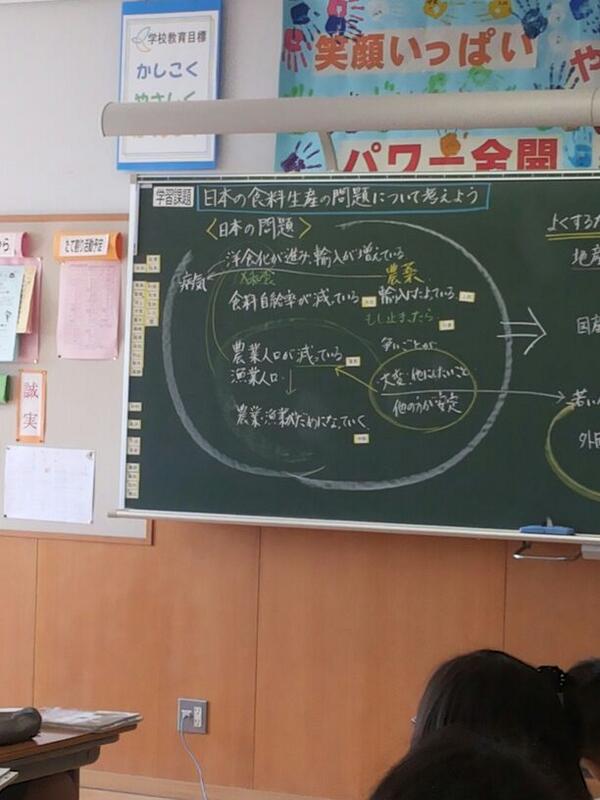 学校教育目標
かしこく
やさしく
笑顔いっぱい
パワー全開
たて割り活動予定
誠実
学習課題
日本の食料生産の問題について考えよう
〈日本の問題〉
洋食化が進み、輸入が増えている
病気
農薬
食料自給率が減っている
輸入にたよっている
もし止まったら
農業人口が減っている
漁業人口
大変・他にしたいこと
他の方が安定
農業・漁業がだめになっていく
よくするた
地産
国産
若い人
外国